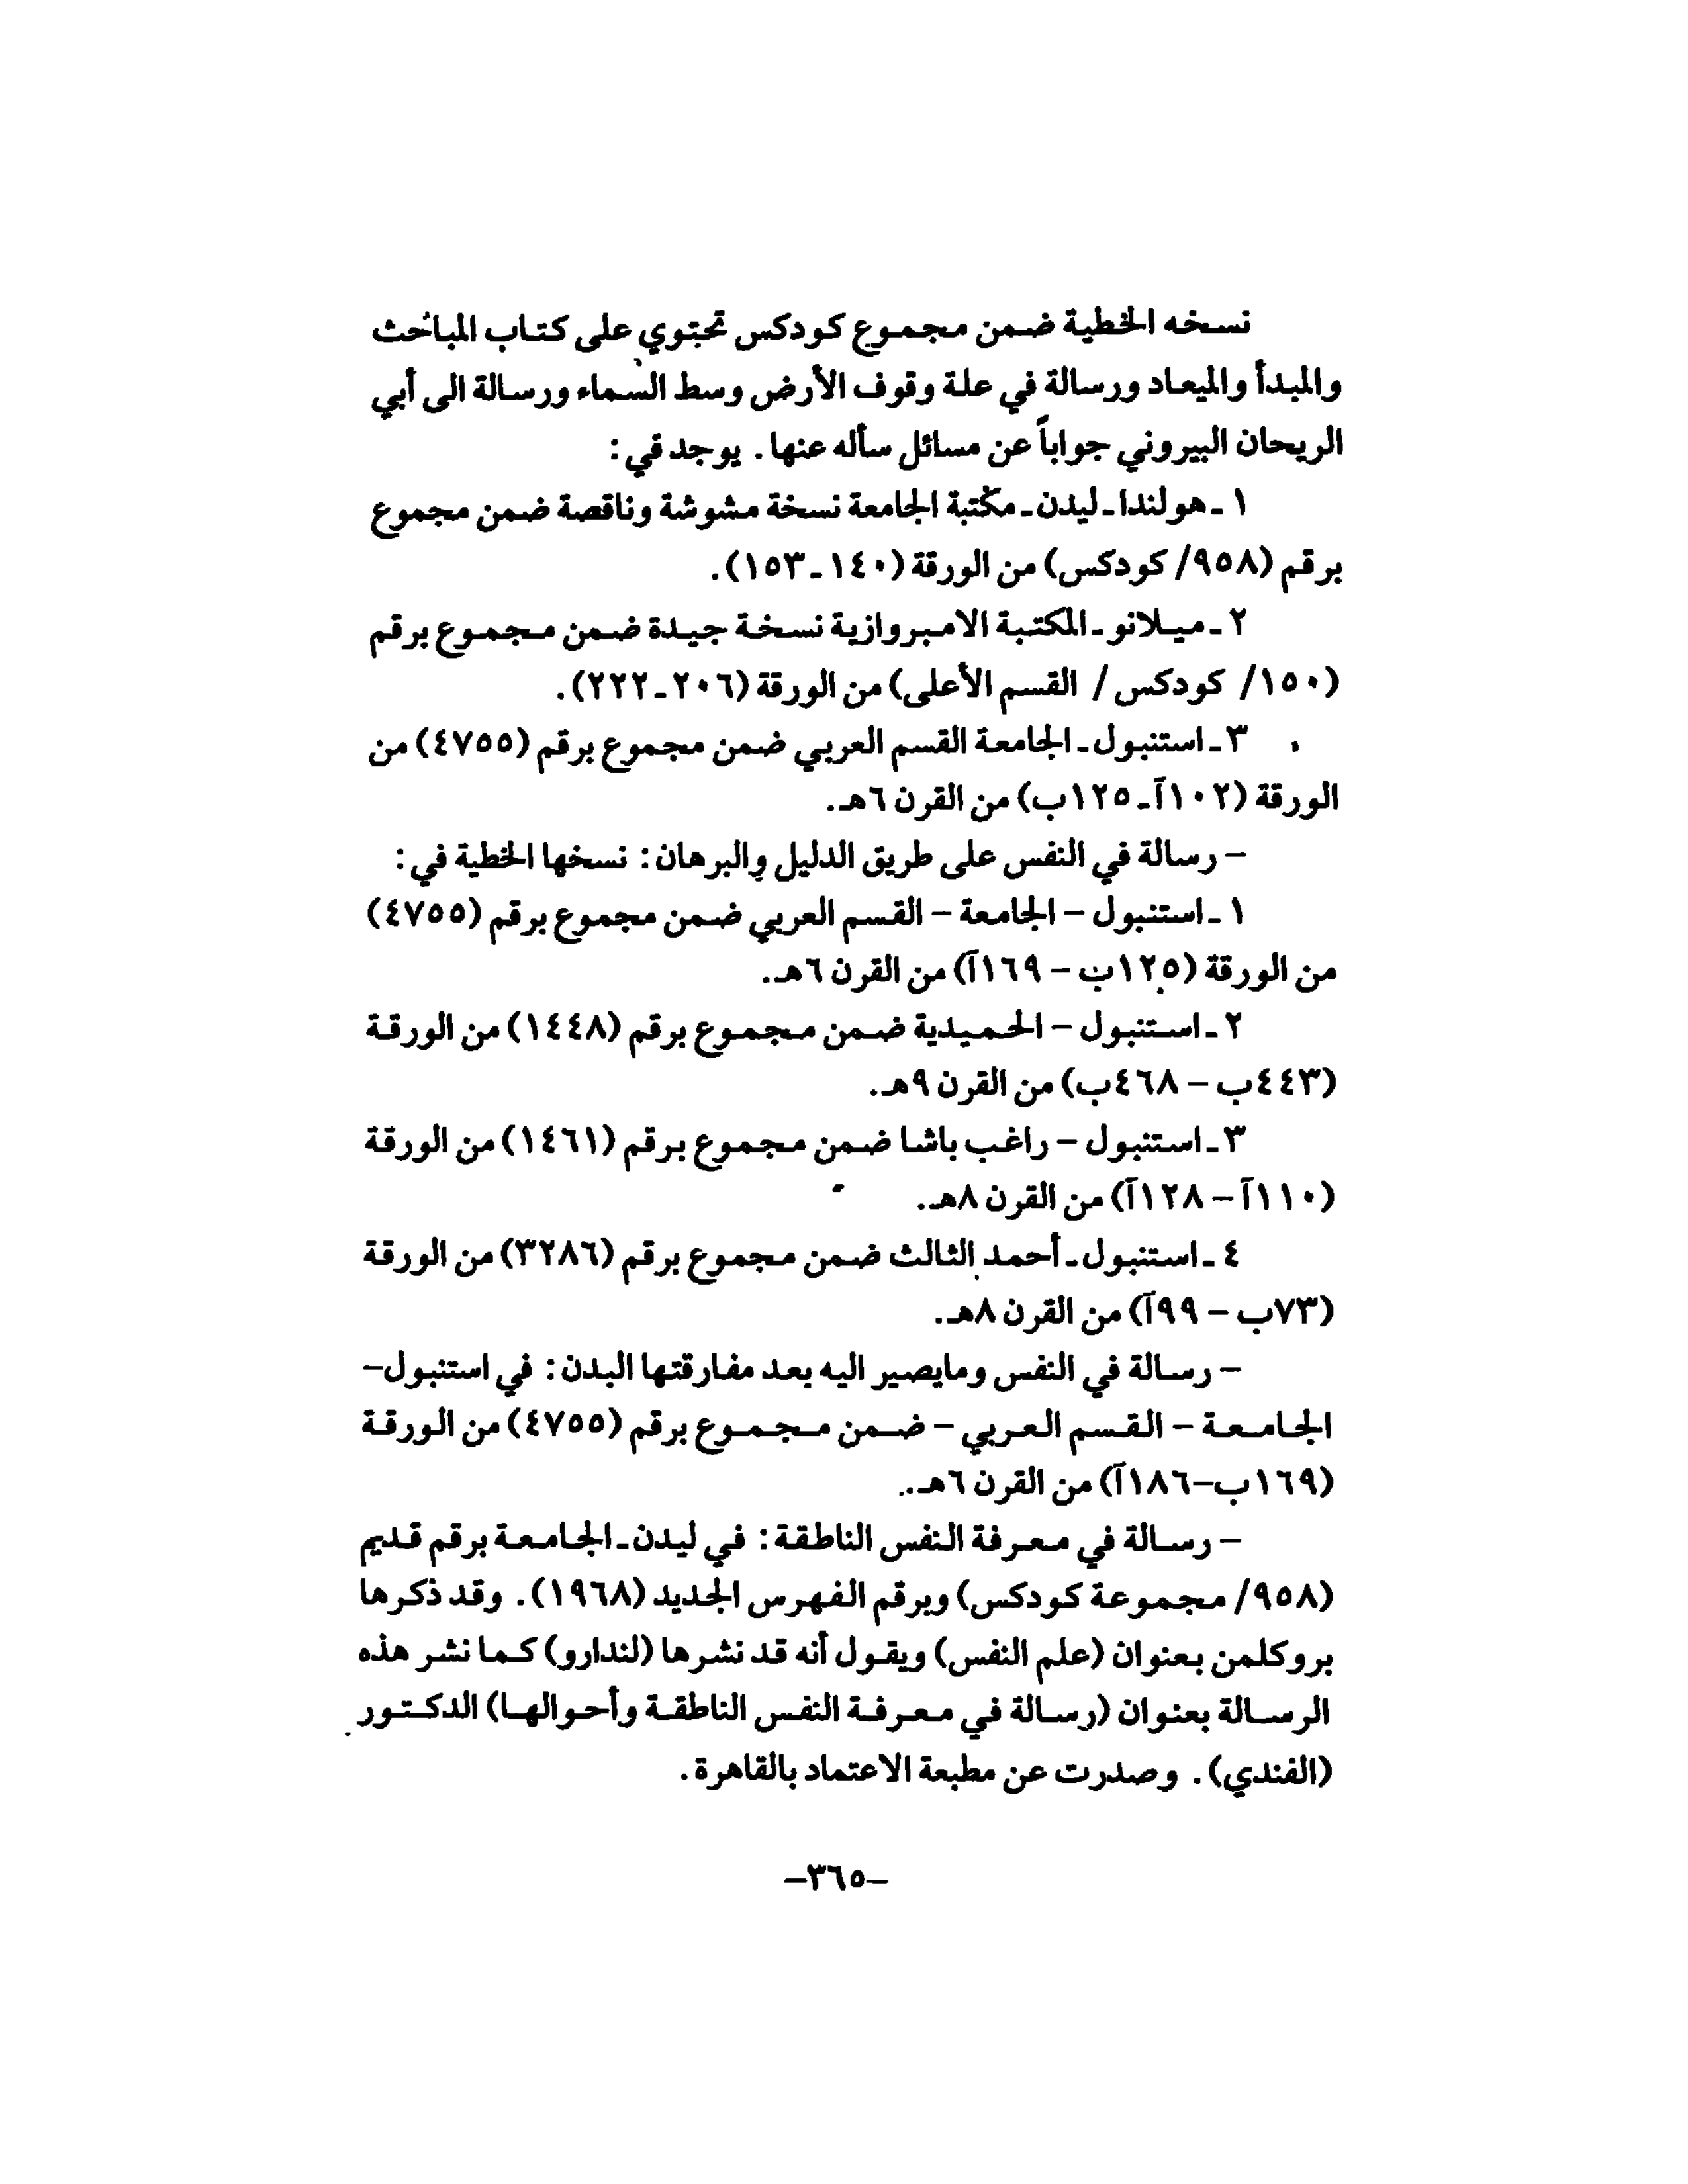 نسخه الخطية ضمن مجموع كودكس تحتوي على كتاب المباحث
والمبدأ والميعاد ورسالة في علة وقوف الأرض وسط السماء ورسالة الى أبي
الريحان البيروني جواباً عن مسائل سأله عنها. يوجد في:
١ ـ هولندا ـ ليدن ـ مكتبة الجامعة نسخة مشوشة وناقصة ضمن مجموع
برقم (٩٥٨/ كودكس) من الورقة (١٤٠ ـ ١٥٣).
٢ ـ ميلانو ـ المكتبة الامبروازية نسخة جيدة ضمن مجموع برقم
(١٥٠/ كودكس / القسم الأعلى) من الورقة (٢٠٦ ـ ٢٢٢).
٣ ـ استنبول ـ الجامعة القسم العربي ضمن مجموع برقم (٤٧٥٥) من
الورقة (١٠٢آ ـ ١٢٥ب) من القرن ٦هـ.
– رسالة في النفس على طريق الدليل والبرهان: نسخها الخطية في:
١ ـ استنبول – الجامعة – القسم العربي ضمن مجموع برقم (٤٧٥٥)
من الورقة (١٢٥ب – ١٦٩آ) من القرن ٦هـ.
٢ ـ استنبول – الحميدية ضمن مجموع برقم (١٤٤٨) من الورقة
(٤٤٣ب – ٤٦٨ب) من القرن ٩هـ.
٣ ـ استنبول – راغب باشا ضمن مجموع برقم (١٤٦١) من الورقة
(١١٠آ – ١٢٨آ) من القرن ٨هـ.
٤ ـ استنبول ـ أحمد الثالث ضمن مجموع برقم (٣٢٨٦) من الورقة
(٧٣ب – ٩٩آ) من القرن ٨هـ.
– رسالة في النفس ومايصير اليه بعد مفارقتها البدن: في استنبول–
الجامعة – القسم العربي – ضمن مجموع برقم (٤٧٥٥) من الورقة
(١٦٩ب–١٨٦آ) من القرن ٦هـ.
– رسالة في معرفة النفس الناطقة: في ليدن ـ الجامعة برقم قديم
(٩٥٨/ مجموعة كودكس) وبرقم الفهرس الجديد (١٩٦٨). وقد ذكرها
بروكلمن بعنوان (علم النفس) ويقول أنه قد نشرها (لندارو) كما نشر هذه
الرسالة بعنوان (رسالة في معرفة النفس الناطقة وأحوالها) الدكتور
(الفندي). وصدرت عن مطبعة الاعتماد بالقاهرة.
–٣٦٥–